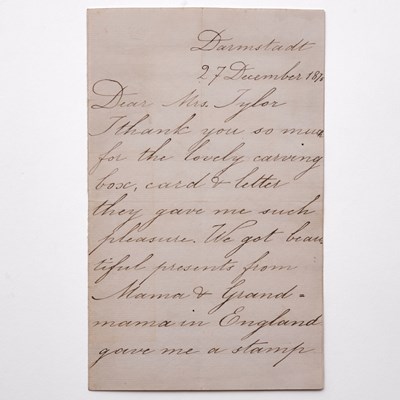 Darmstadt
27 December
Dear Mrs. Tylor
I thank you so much
for the lovely carving
box, card & letter
they gave me such
pleasure. We got beau
tiful presents from
Mama & Grand=
mama in England
gave me a stamp